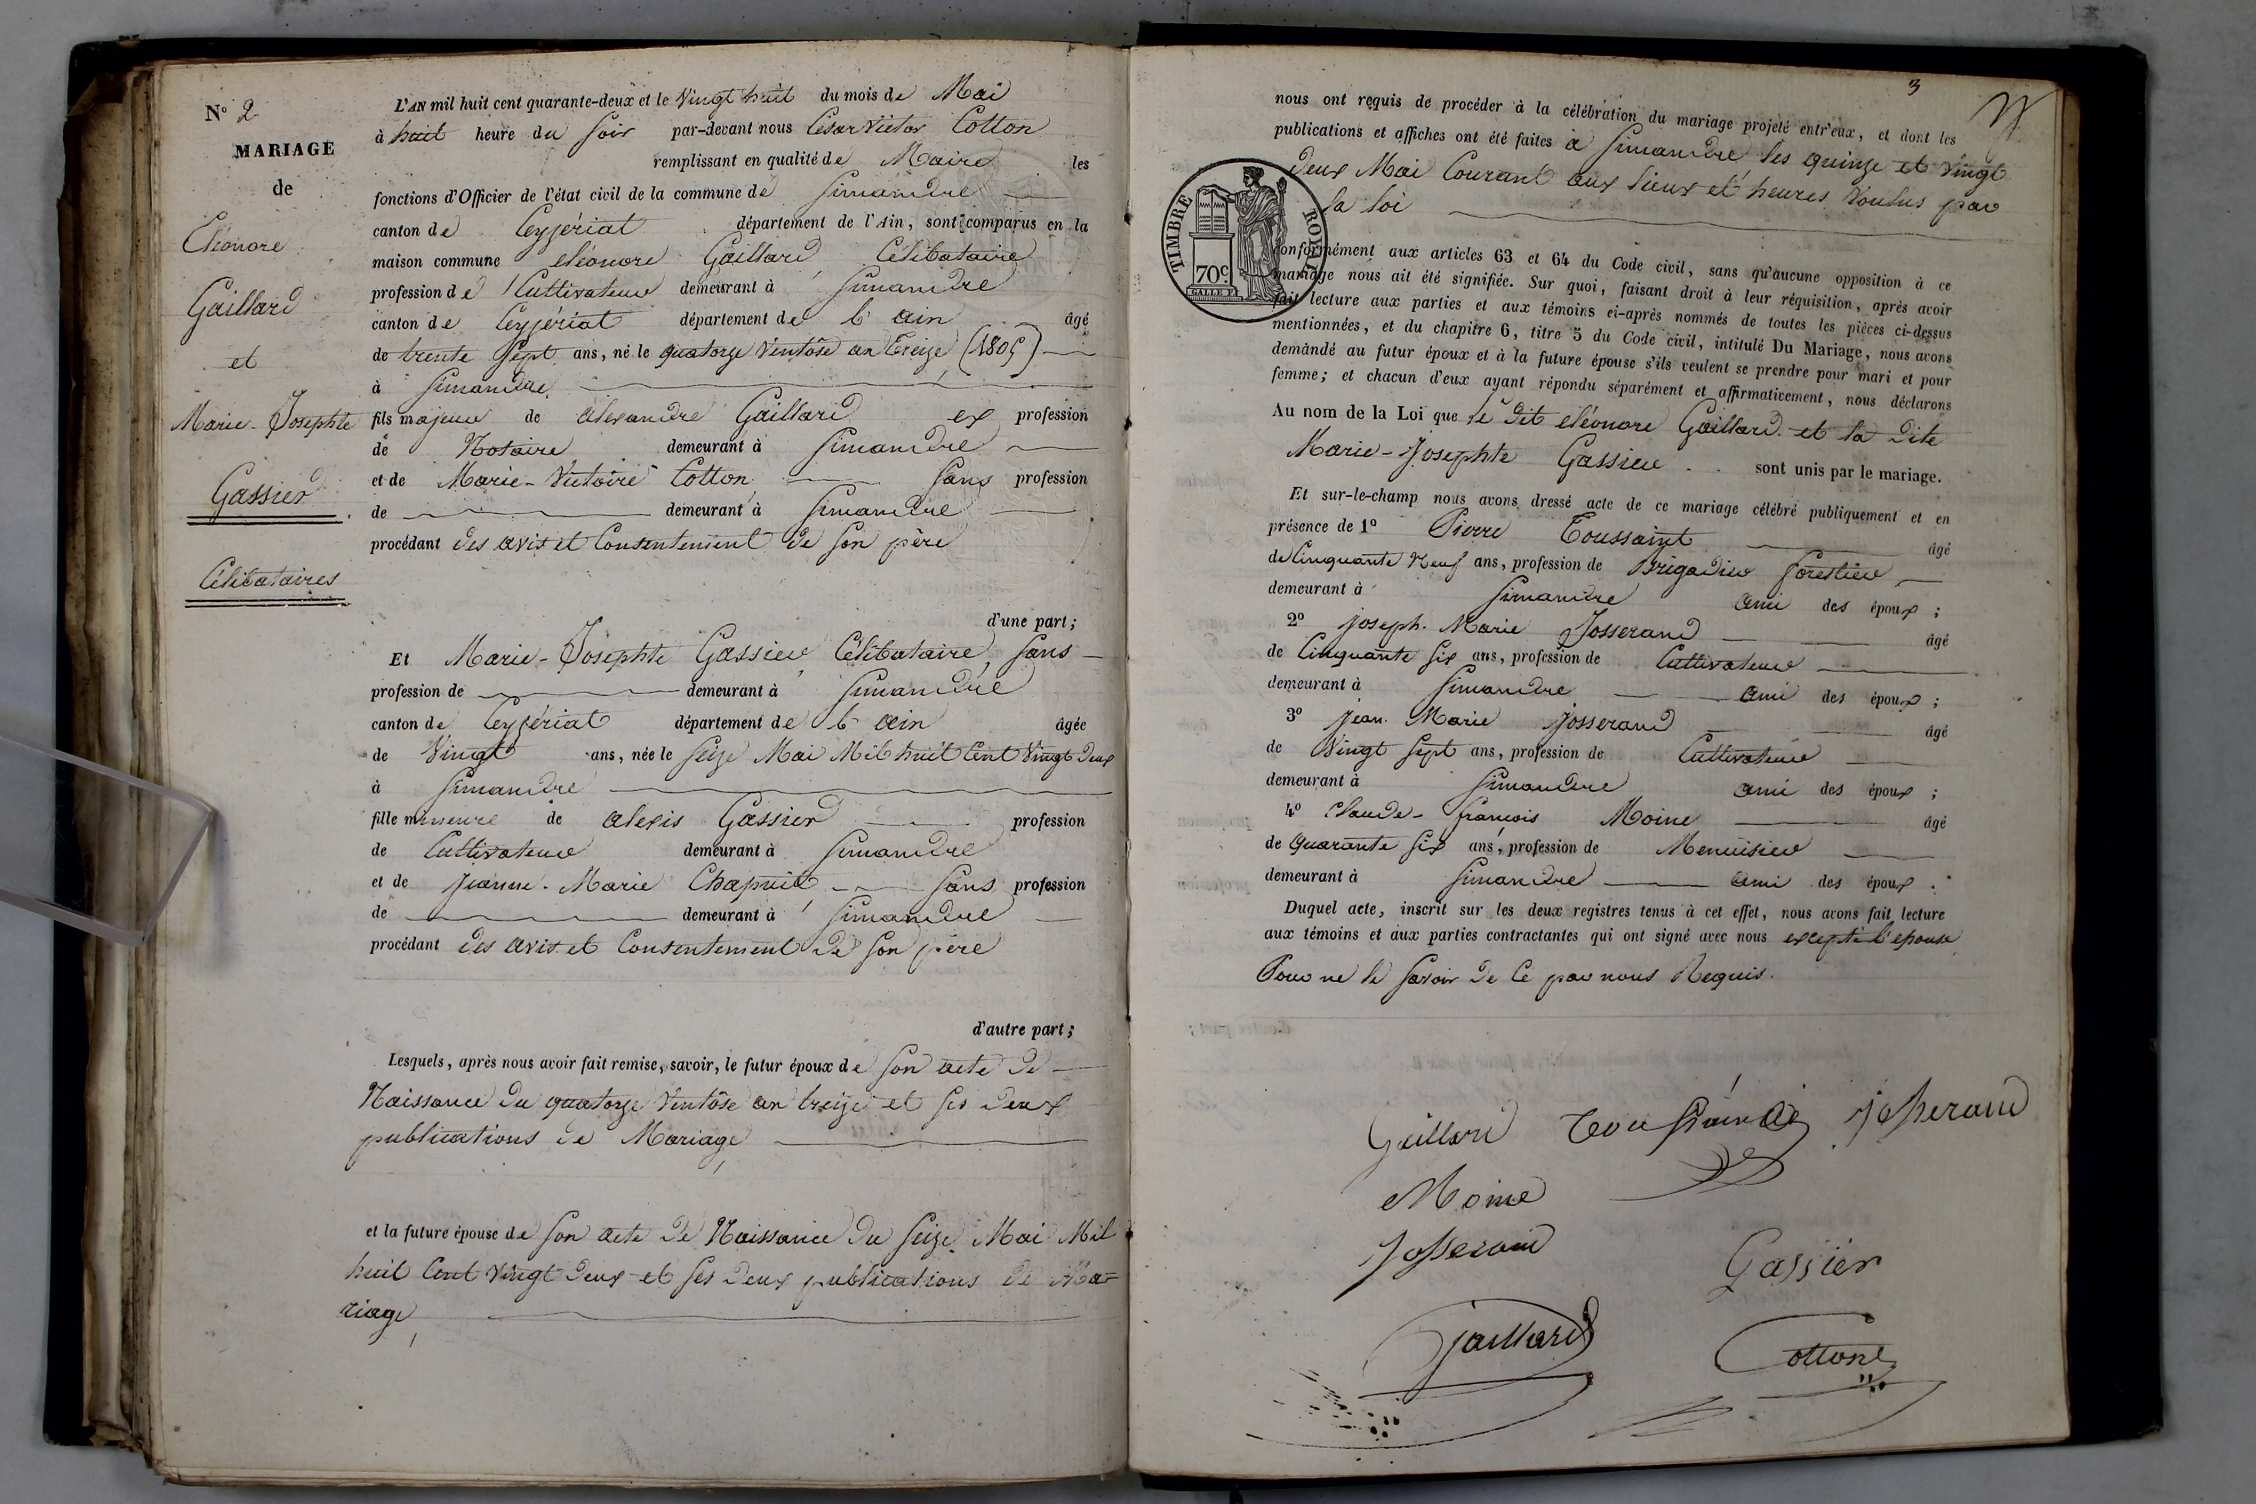 N° 2
MARIAGE
de
Eléonore
Gaillard
et
Marie-Josephte
Gassier
Célibataires
L'AN mil huit cent quarante-deux et le Vingt huit du mois de Mai
à huit heure du Soir par-devant nous César Victor Cotton
remplissant en qualité de Maire les
fonctions d'Officier de l'état civil de la commune de Simandre
canton de Ceyzériat département de l'Ain, sont comparus en la
maison commune eléonore Gaillard Célibataire
profession de Cultivateur demeurant à Simandre
canton de Ceyzériat département de l'ain âgé
de trente Sept ans, né le quatorze Ventôse an treize (1805)
à Simandre
fils majeur de alexandre Gaillard ex profession
de Notaire demeurant à Simandre
et de Marie-Victoire Cotton Sans profession
de demeurant à Simandre
procédant des avis et Consentement de Son père
d'une part;
Et Marie-Josephte Gassier Célibataire, Sans
profession de demeurant à Simandre
canton de Ceyzériat département de l'ain âgée
de Vingt ans, née le Seize Mai Mil huit Cent Vingt Deux
à Simandre
fille mineure de alexis Gassier profession
de Cultivateur demeurant à Simandre
et de Jeanne-Marie Chapuit Sans profession
de demeurant à Simandre
procédant des avis et Consentement de Son père
d'autre part;
Lesquels, après nous avoir fait remise, savoir, le futur époux de Son acte de
Naissance du quatorze Ventôse an treize et Ses Deux
publications de Mariage
et la future épouse de Son acte de Naissance du Seize Mai Mil
huit Cent Vingt Deux et Ses Deux publications de Ma=
riage
3
nous ont requis de procéder à la célébration du mariage projeté entr'eux, et dont les
publications et affiches ont été faites à Simandre les quinze et Vingt
Deux Mai Courant aux lieux et heures Voulus par
la loi
TIMBRE ROYAL
70c.
GALLE F.
conformément aux articles 63 et 64 du Code civil, sans qu'aucune opposition à ce
mariage nous ait été signifiée. Sur quoi, faisant droit à leur réquisition, après avoir
fait lecture aux parties et aux témoins ci-après nommés de toutes les pièces ci-dessus
mentionnées, et du chapitre 6, titre 5 du Code civil, intitulé Du Mariage, nous avons
demandé au futur époux et à la future épouse s'ils veulent se prendre pour mari et pour
femme; et chacun d'eux ayant répondu séparément et affirmativement, nous déclarons
Au nom de la Loi que le Dit eléonore Gaillard et la Dite
Marie-Josephte Gassier sont unis par le mariage.
Et sur-le-champ nous avons dressé acte de ce mariage célébré publiquement et en
présence de 1° Pierre Toussaint âgé
de Cinquante Neuf ans, profession de Brigadier forestier
demeurant à Simandre ami des époux;
2° Joseph-Marie Josserand âgé
de Cinquante Six ans, profession de Cultivateur
demeurant à Simandre ami des époux;
3° Jean-Marie Josserand âgé
de Vingt Sept ans, profession de Cultivateur
demeurant à Simandre ami des époux;
4° Claude-françois Moine âgé
de Quarante Six ans, profession de Menuisier
demeurant à Simandre ami des époux.
Duquel acte, inscrit sur les deux registres tenus à cet effet, nous avons fait lecture
aux témoins et aux parties contractantes qui ont signé avec nous excepté l'épouse
Pour ne le Savoir de Ce par nous Requis.
Gaillard Toussaint Josserand
Moine
Josserand Gassier
Gaillard Cotton